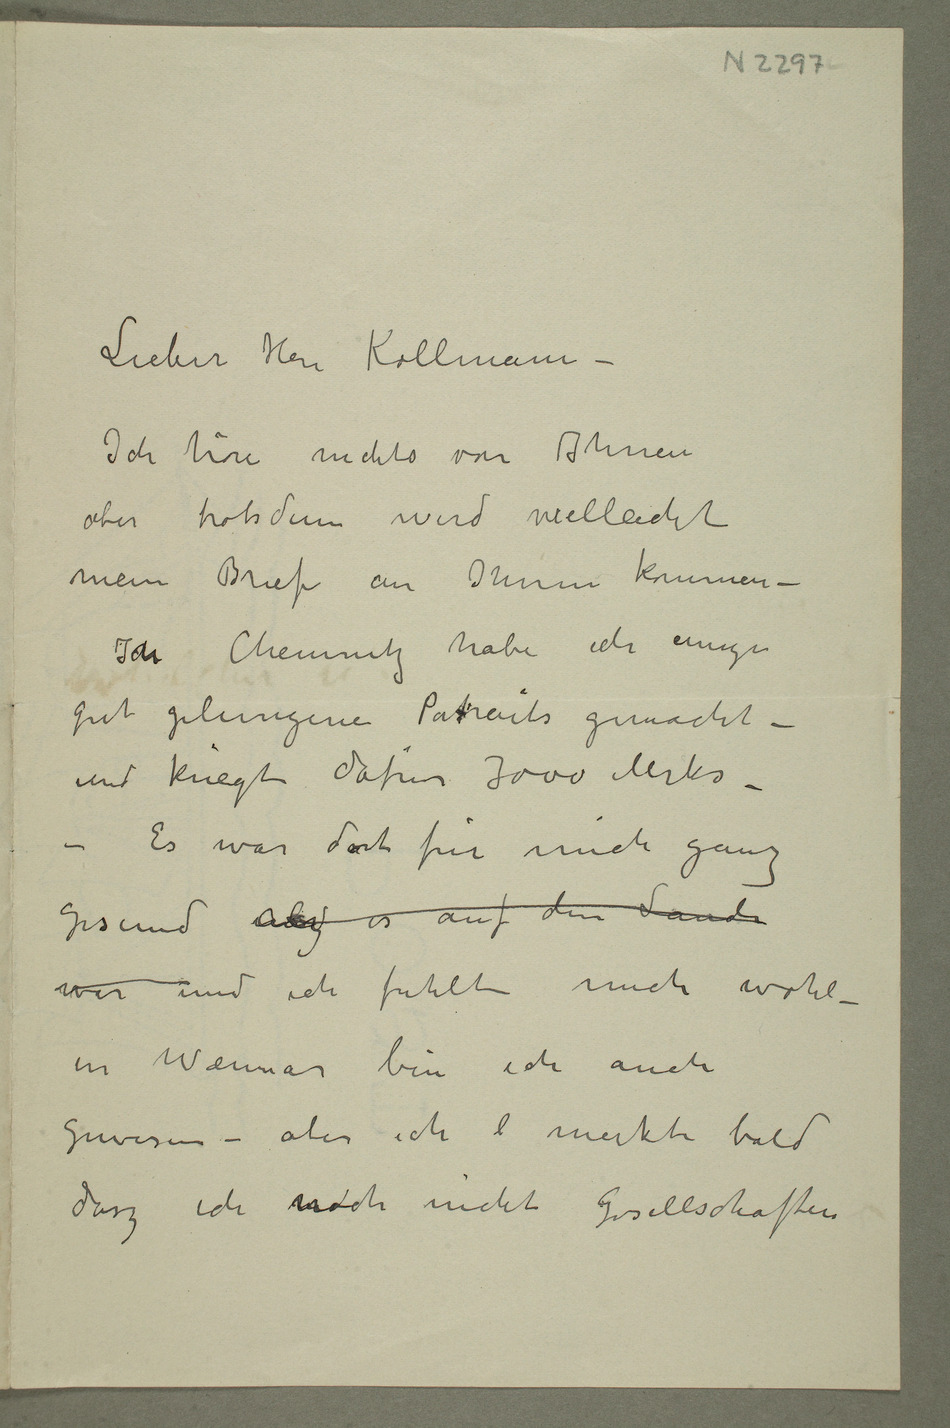 N 2297
Lieber Herr Kollmann –
Ich höre nichts von Ihnen
aber trotsdem wird vielleicht
mein Brief an Ihnen kommen –
In Chemnitz habe ich einige
gut gelungene Potraits gemacht –
und kriegte dafür 7000 Mrks –
– Es war dort für mich ganz
gesund als es auf dem Lande
war und ich fühlte mich wohl –
in Weimar bin ich auch
gewesen – aber ich merkte bald
dasz ich noch nicht Gesellschaften